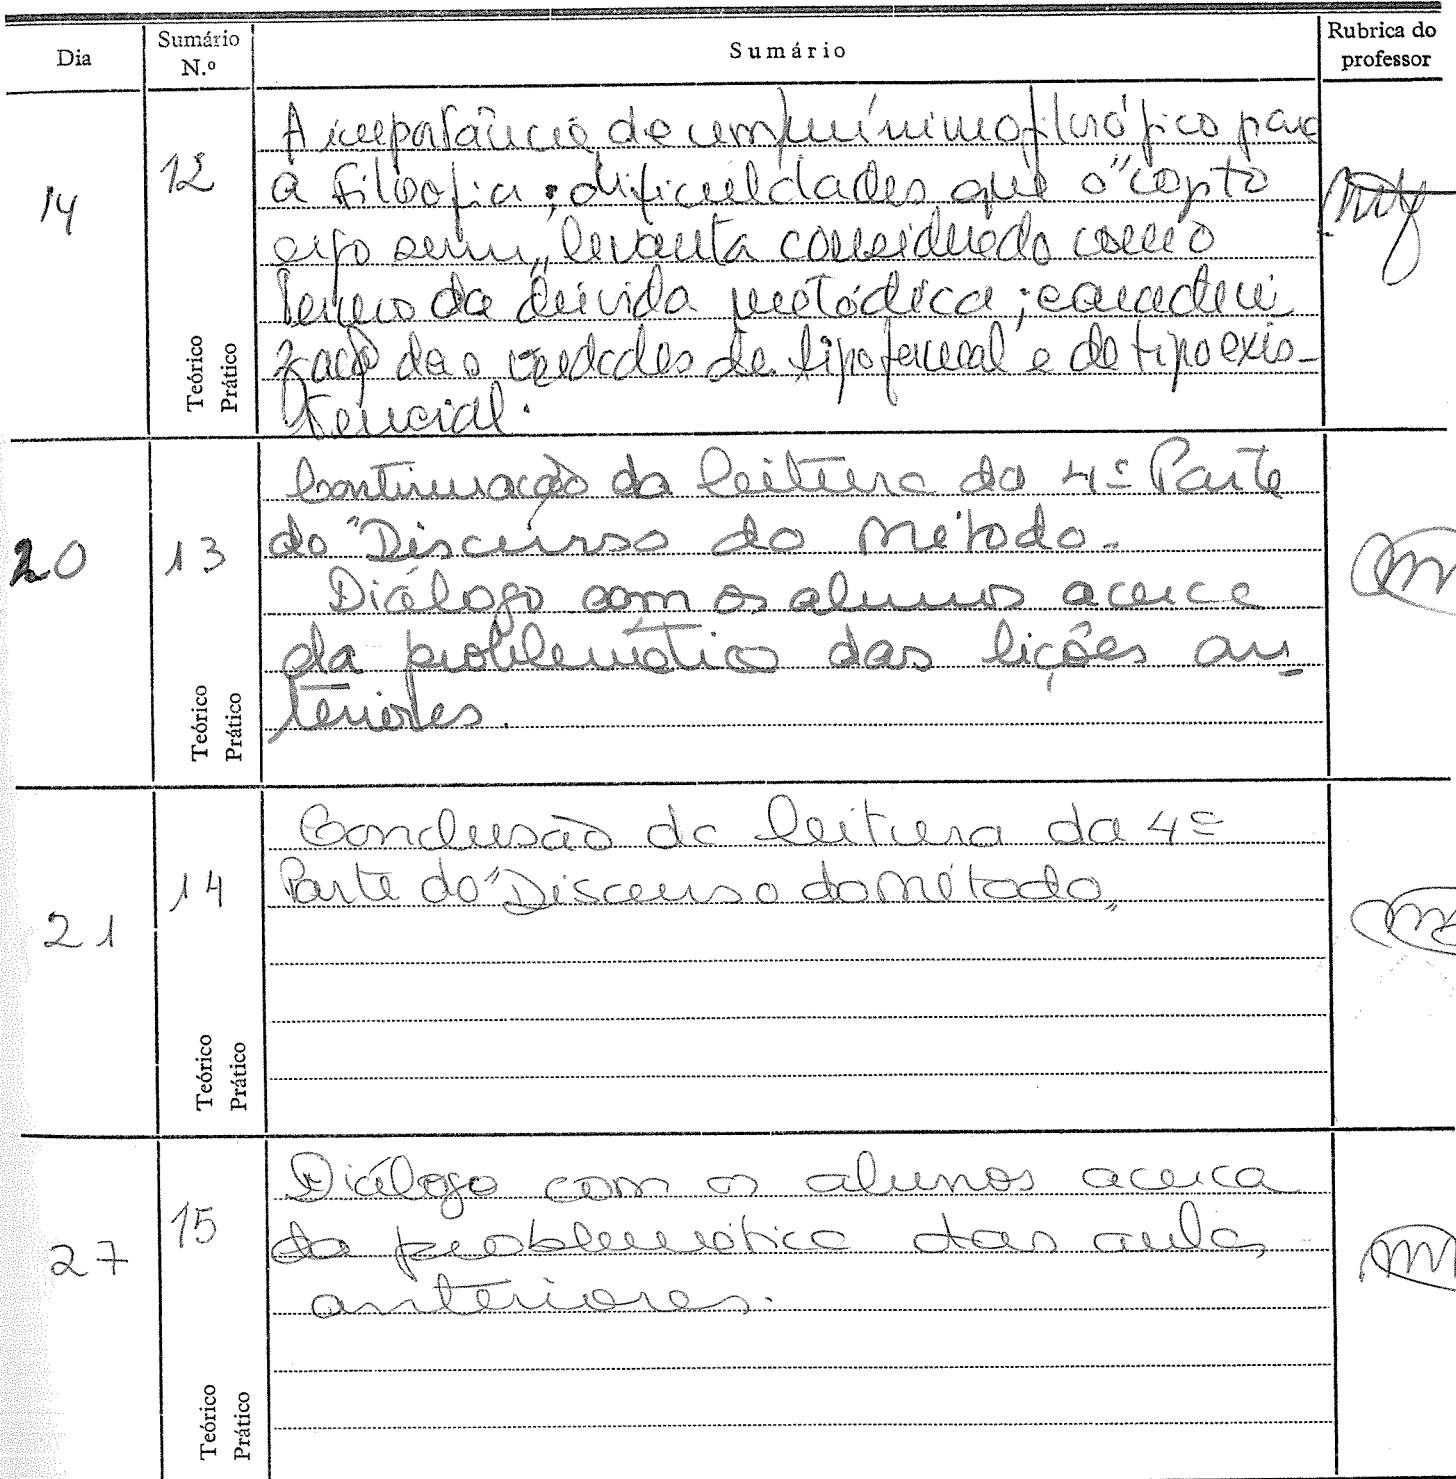 Dia
Sumário N.º
Sumário
Rubrica do professor
14
12
A importância de um mínimo filosófico para
a filosofia; dificuldades que o "cogito
ergo sum" levanta considerado como
termo da dúvida metódica; caracteri
zação das verdades de tipo formal e de tipo exis-
tencial.
Teórico
Prático
20
13
Continuação da leitura da 4ª Parte
do "Discurso do Método.
Diálogo com os alunos acerca
da problemática das lições an
teriores.
Teórico
Prático
21
14
Conclusão da leitura da 4ª
Parte do "Discurso do Método"
Teórico
Prático
27
15
Diálogo com os alunos acerca
da problemática das aulas
anteriores.
Teórico
Prático